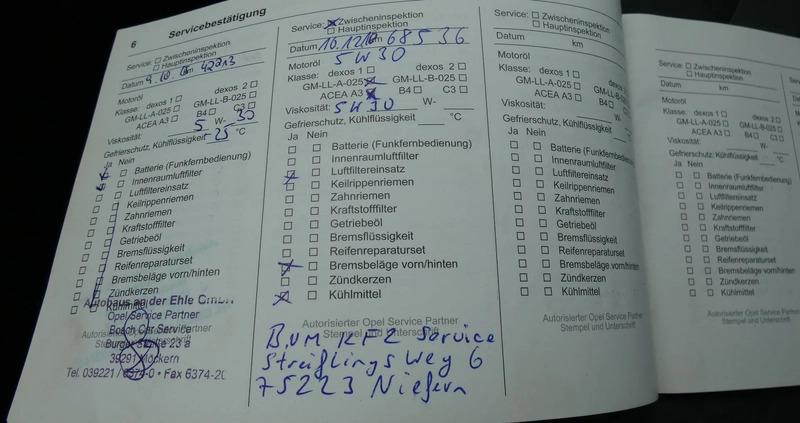 6 Servicebestätigung
Service: Zwischeninspektion
Hauptinspektion
Datum 9.10. km 42713
Motoröl
Klasse: dexos 1 dexos 2
GM-LL-A-025 GM-LL-B-025
ACEA A3 B4 C3
Viskosität: 5 W- 30
Gefrierschutz, Kühlflüssigkeit -25 °C
Ja Nein
Batterie (Funkfernbedienung)
Innenraumluftfilter
Luftfiltereinsatz
Keilrippenriemen
Zahnriemen
Kraftstofffilter
Getriebeöl
Bremsflüssigkeit
Reifenreparaturset
Bremsbeläge vorn/hinten
Zündkerzen
Kühlmittel
Autohaus an der Ehle GmbH
Opel Service Partner
Autorisierter Opel Service Partner
Bosch Car Service
Burger Straße 23 a
39291 Möckern
Tel. 039221 / 6374-0 • Fax 6374-20
Service: Zwischeninspektion
Hauptinspektion
Datum 10.12 km 68536
Motoröl 5W30
Klasse: dexos 1 dexos 2
GM-LL-A-025 GM-LL-B-025
ACEA A3 B4 C3
Viskosität: 5W30 W-
Gefrierschutz, Kühlflüssigkeit °C
Ja Nein
Batterie (Funkfernbedienung)
Innenraumluftfilter
Luftfiltereinsatz
Keilrippenriemen
Zahnriemen
Kraftstofffilter
Getriebeöl
Bremsflüssigkeit
Reifenreparaturset
Bremsbeläge vorn/hinten
Zündkerzen
Kühlmittel
Autorisierter Opel Service Partner
Stempel und Unterschrift
B.UM KFZ Service
Streiflings Weg 6
75223 Niefern
Service: Zwischeninspektion
Hauptinspektion
Datum km
Motoröl
Klasse: dexos 1 dexos 2
GM-LL-A-025 GM-LL-B-025
ACEA A3 B4 C3
Viskosität: W-
Gefrierschutz, Kühlflüssigkeit °C
Ja Nein
Batterie (Funkfernbedienung)
Innenraumluftfilter
Luftfiltereinsatz
Keilrippenriemen
Zahnriemen
Kraftstofffilter
Getriebeöl
Bremsflüssigkeit
Reifenreparaturset
Bremsbeläge vorn/hinten
Zündkerzen
Kühlmittel
Autorisierter Opel Service Partner
Stempel und Unterschrift
Service: Zwischeninspektion
Hauptinspektion
Datum km
Motoröl
Klasse: dexos 1 dexos 2
GM-LL-A-025 GM-LL-B-025
ACEA A3 B4 C3
Viskosität: W-
Gefrierschutz, Kühlflüssigkeit °C
Ja Nein
Batterie (Funkfernbedienung)
Innenraumluftfilter
Luftfiltereinsatz
Keilrippenriemen
Zahnriemen
Kraftstofffilter
Getriebeöl
Bremsflüssigkeit
Reifenreparaturset
Bremsbeläge vorn/hinten
Zündkerzen
Kühlmittel
Autorisierter Opel Service Partner
Stempel und Unterschrift